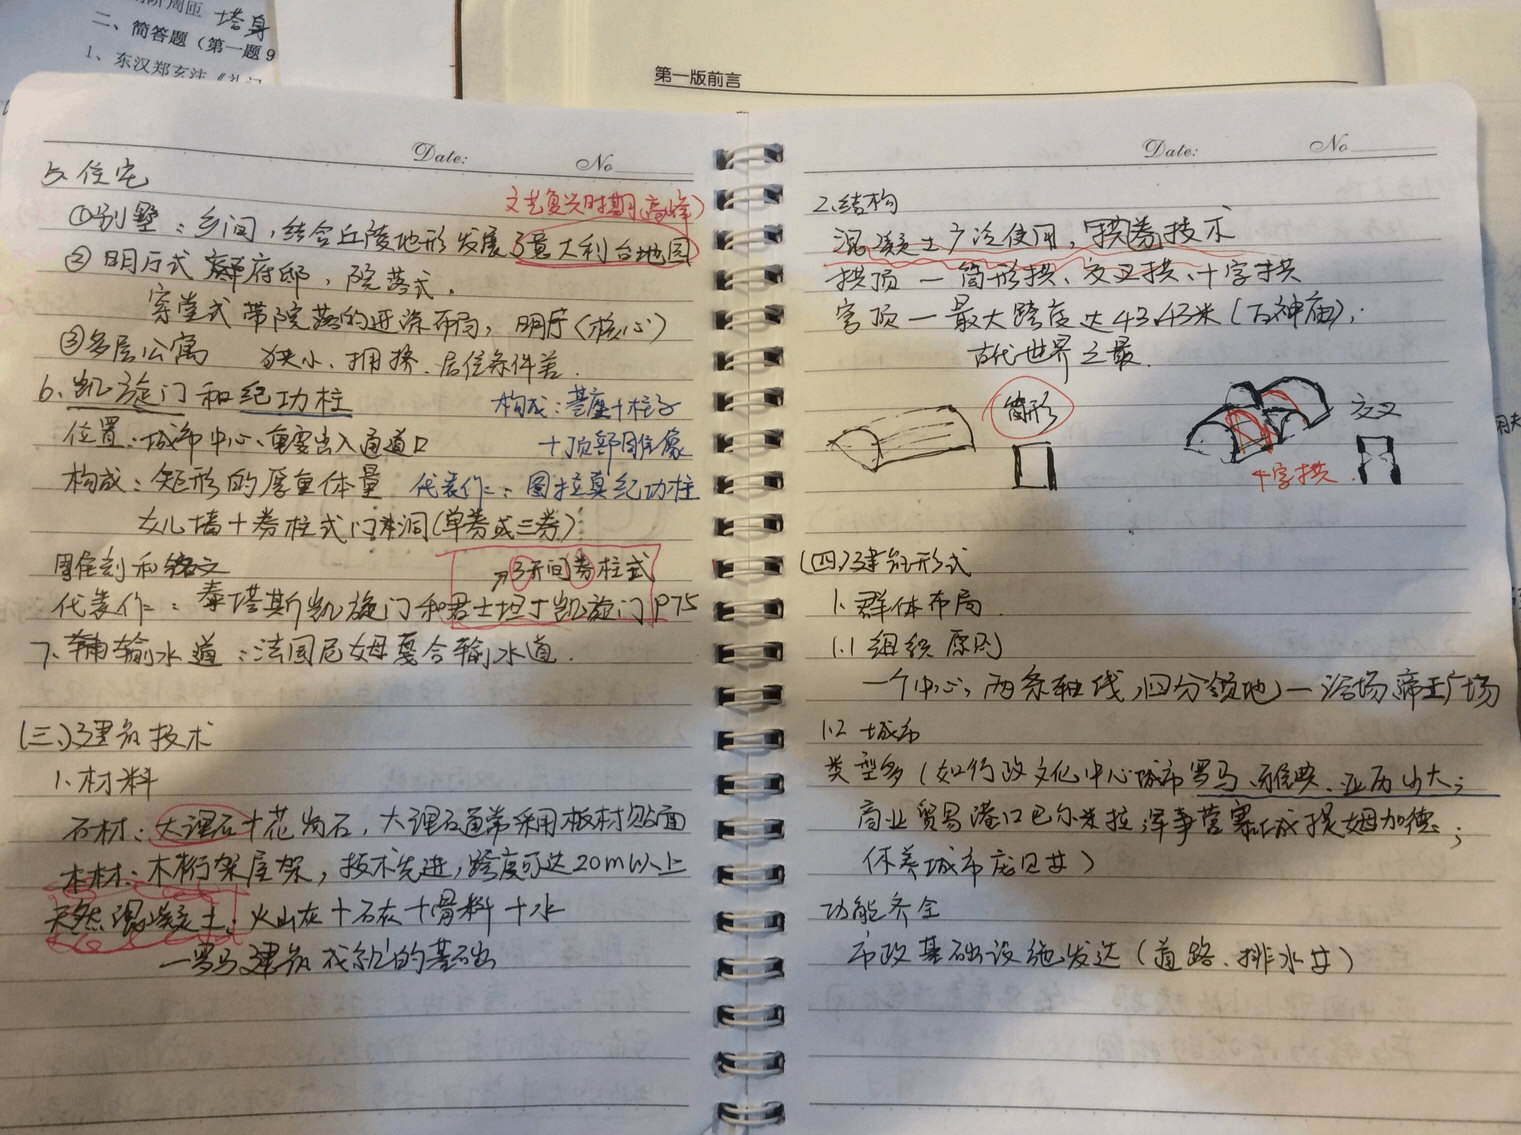 阶周匝 塔身
二、简答题（第一题9
1、东汉郑玄注《礼记
第一版前言
Date: No
5. 住宅
文艺复兴时期(高峰)
①别墅：乡间，结合丘陵地形发展了意大利台地园
② 明厅式 府邸，院落式，
寓堂式 带院落的进深布局，明厅(核心)
③多层公寓 狭小、拥挤、居住条件差.
6. 凯旋门和纪功柱 构成：基座+柱子
+顶部雕像
位置：城市中心、重要出入通道口
构成：矩形的厚重体量 代表作：图拉真纪功柱
女儿墙+券柱式门洞(单券或三券)
雕刻和铭文 →3开间券柱式
代表作：泰塔斯凯旋门和君士坦丁凯旋门 P75
7. 输水道：法国尼姆戛合输水道.
(三)建筑技术
1. 材料
石材：大理石+花岗石，大理石通常采用板材贴面
木材：木桁架屋架，技术先进，跨度可达20m以上
天然混凝土：火山灰+石灰+骨料+水
—罗马建筑成就的基础
Date: No
2.结构
混凝土广泛使用，拱券技术
拱顶 — 筒形拱、交叉拱、十字拱
穹顶 — 最大跨度达43.43米(万神庙)，
古代世界之最.
筒形 交叉
十字拱
(四)建筑形式
1. 群体布局
1.1 组织原则
一个中心，两条轴线，四分领地 — 浴场、帝王广场
1.2 城市
类型多(如行政文化中心城市罗马、雅典、亚历山大；
商业贸易港口巴尔米拉 军事营寨城提姆加德；
休养城市庞贝等)
功能齐全
市政基础设施发达(道路、排水等)